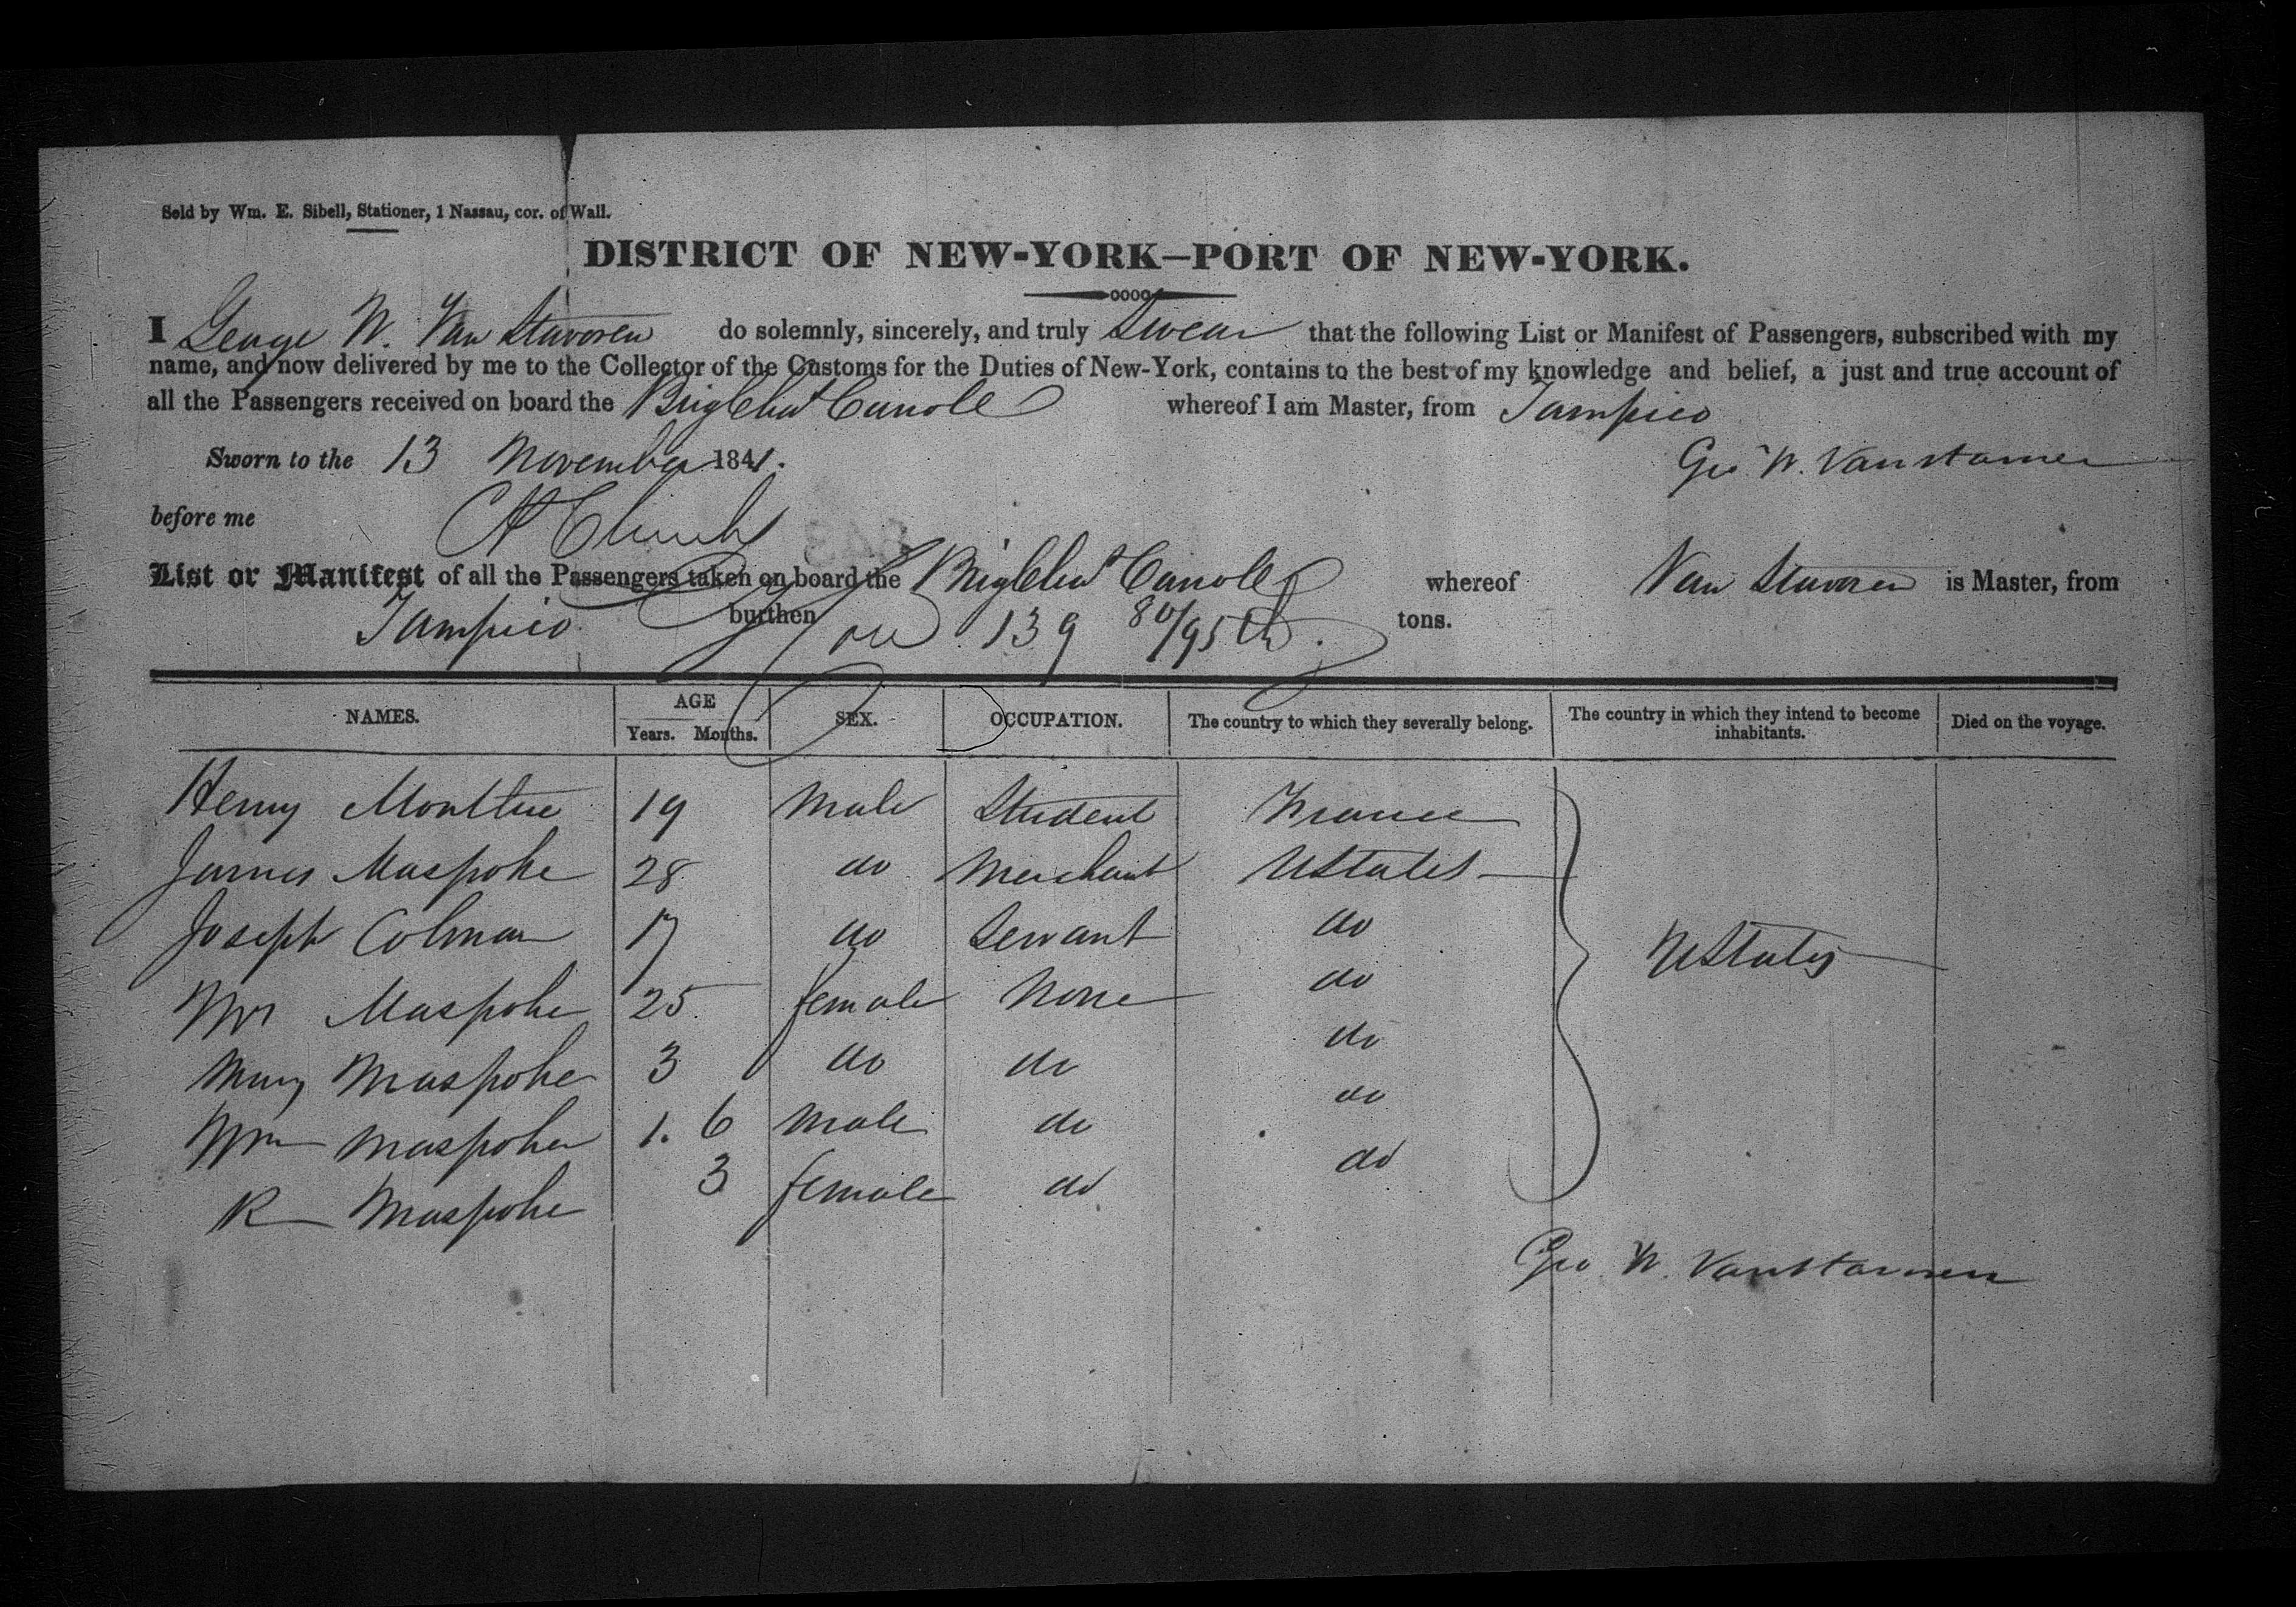 Sold by Wm. E. Sibell, Stationer, 1 Nassau, cor. of Wall.
DISTRICT OF NEW-YORK—PORT OF NEW-YORK.
I George W. Van Stavoren do solemnly, sincerely, and truly Swear that the following List or Manifest of Passengers, subscribed with my
name, and now delivered by me to the Collector of the Customs for the Duties of New-York, contains to the best of my knowledge and belief, a just and true account of
all the Passengers received on board the Brig Chs Carroll whereof I am Master, from Tampico
Sworn to the 13 November 1841. Geo W. Vanstavoren
before me
List or Manifest of all the Passengers taken on board the Brig Chs Carroll whereof Van Stavoren is Master, from
Tampico burthen 139 80/95th tons.
NAMES. AGE Years. Months. SEX. OCCUPATION. The country to which they severally belong. The country in which they intend to become inhabitants. Died on the voyage.
Henry 19 Male Student France
James Maspohe 28 do Merchant UStates
Joseph Colman 17 do Servant do UStates
Mrs Maspohe 25 female None do
Mary Maspohe 3 do do do
Wm Maspohe 1. 6 Male do do
R Maspohe 3 female do do
Geo. W. Vanstavoren